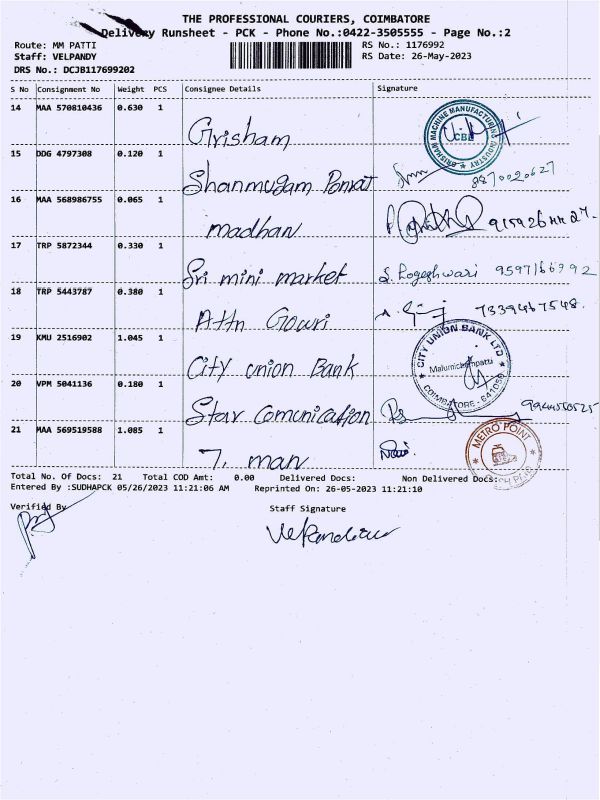 THE PROFESSIONAL COURIERS, COIMBATORE
Delivery Runsheet - PCK - Phone No.:0422-3505555 - Page No.:2
Route: MM PATTI
RS No.: 1176992
Staff: VELPANDY
RS Date: 26-May-2023
DRS No.: DCJB117699202
S No Consignment No Weight PCS Consignee Details Signature
14 MAA 570810436 0.630 1
Grisham
GRISHAM MACHINE MANUFACTURING INDUSTRY
CBE
15 DDG 4797308 0.120 1
Shanmugam
8870020627
16 MAA 568986755 0.065 1
madhan
17 TRP 5872344 0.330 1
Sri mini market
S. Logeshwari 9597166992
18 TRP 5443787 0.380 1
Attn Gowri
7339467548.
19 KMU 2516902 1.045 1
City union Bank
CITY UNION BANK LTD
Malumichampatti
COIMBATORE - 641050
20 VPM 5041136 0.180 1
Star Comunication
21 MAA 569519588 1.085 1
T. man
METRO POINT
Total No. Of Docs: 21 Total COD Amt: 0.00 Delivered Docs: Non Delivered Docs:
Entered By :SUDHAPCK 05/26/2023 11:21:06 AM Reprinted On: 26-05-2023 11:21:10
Verified By
Staff Signature